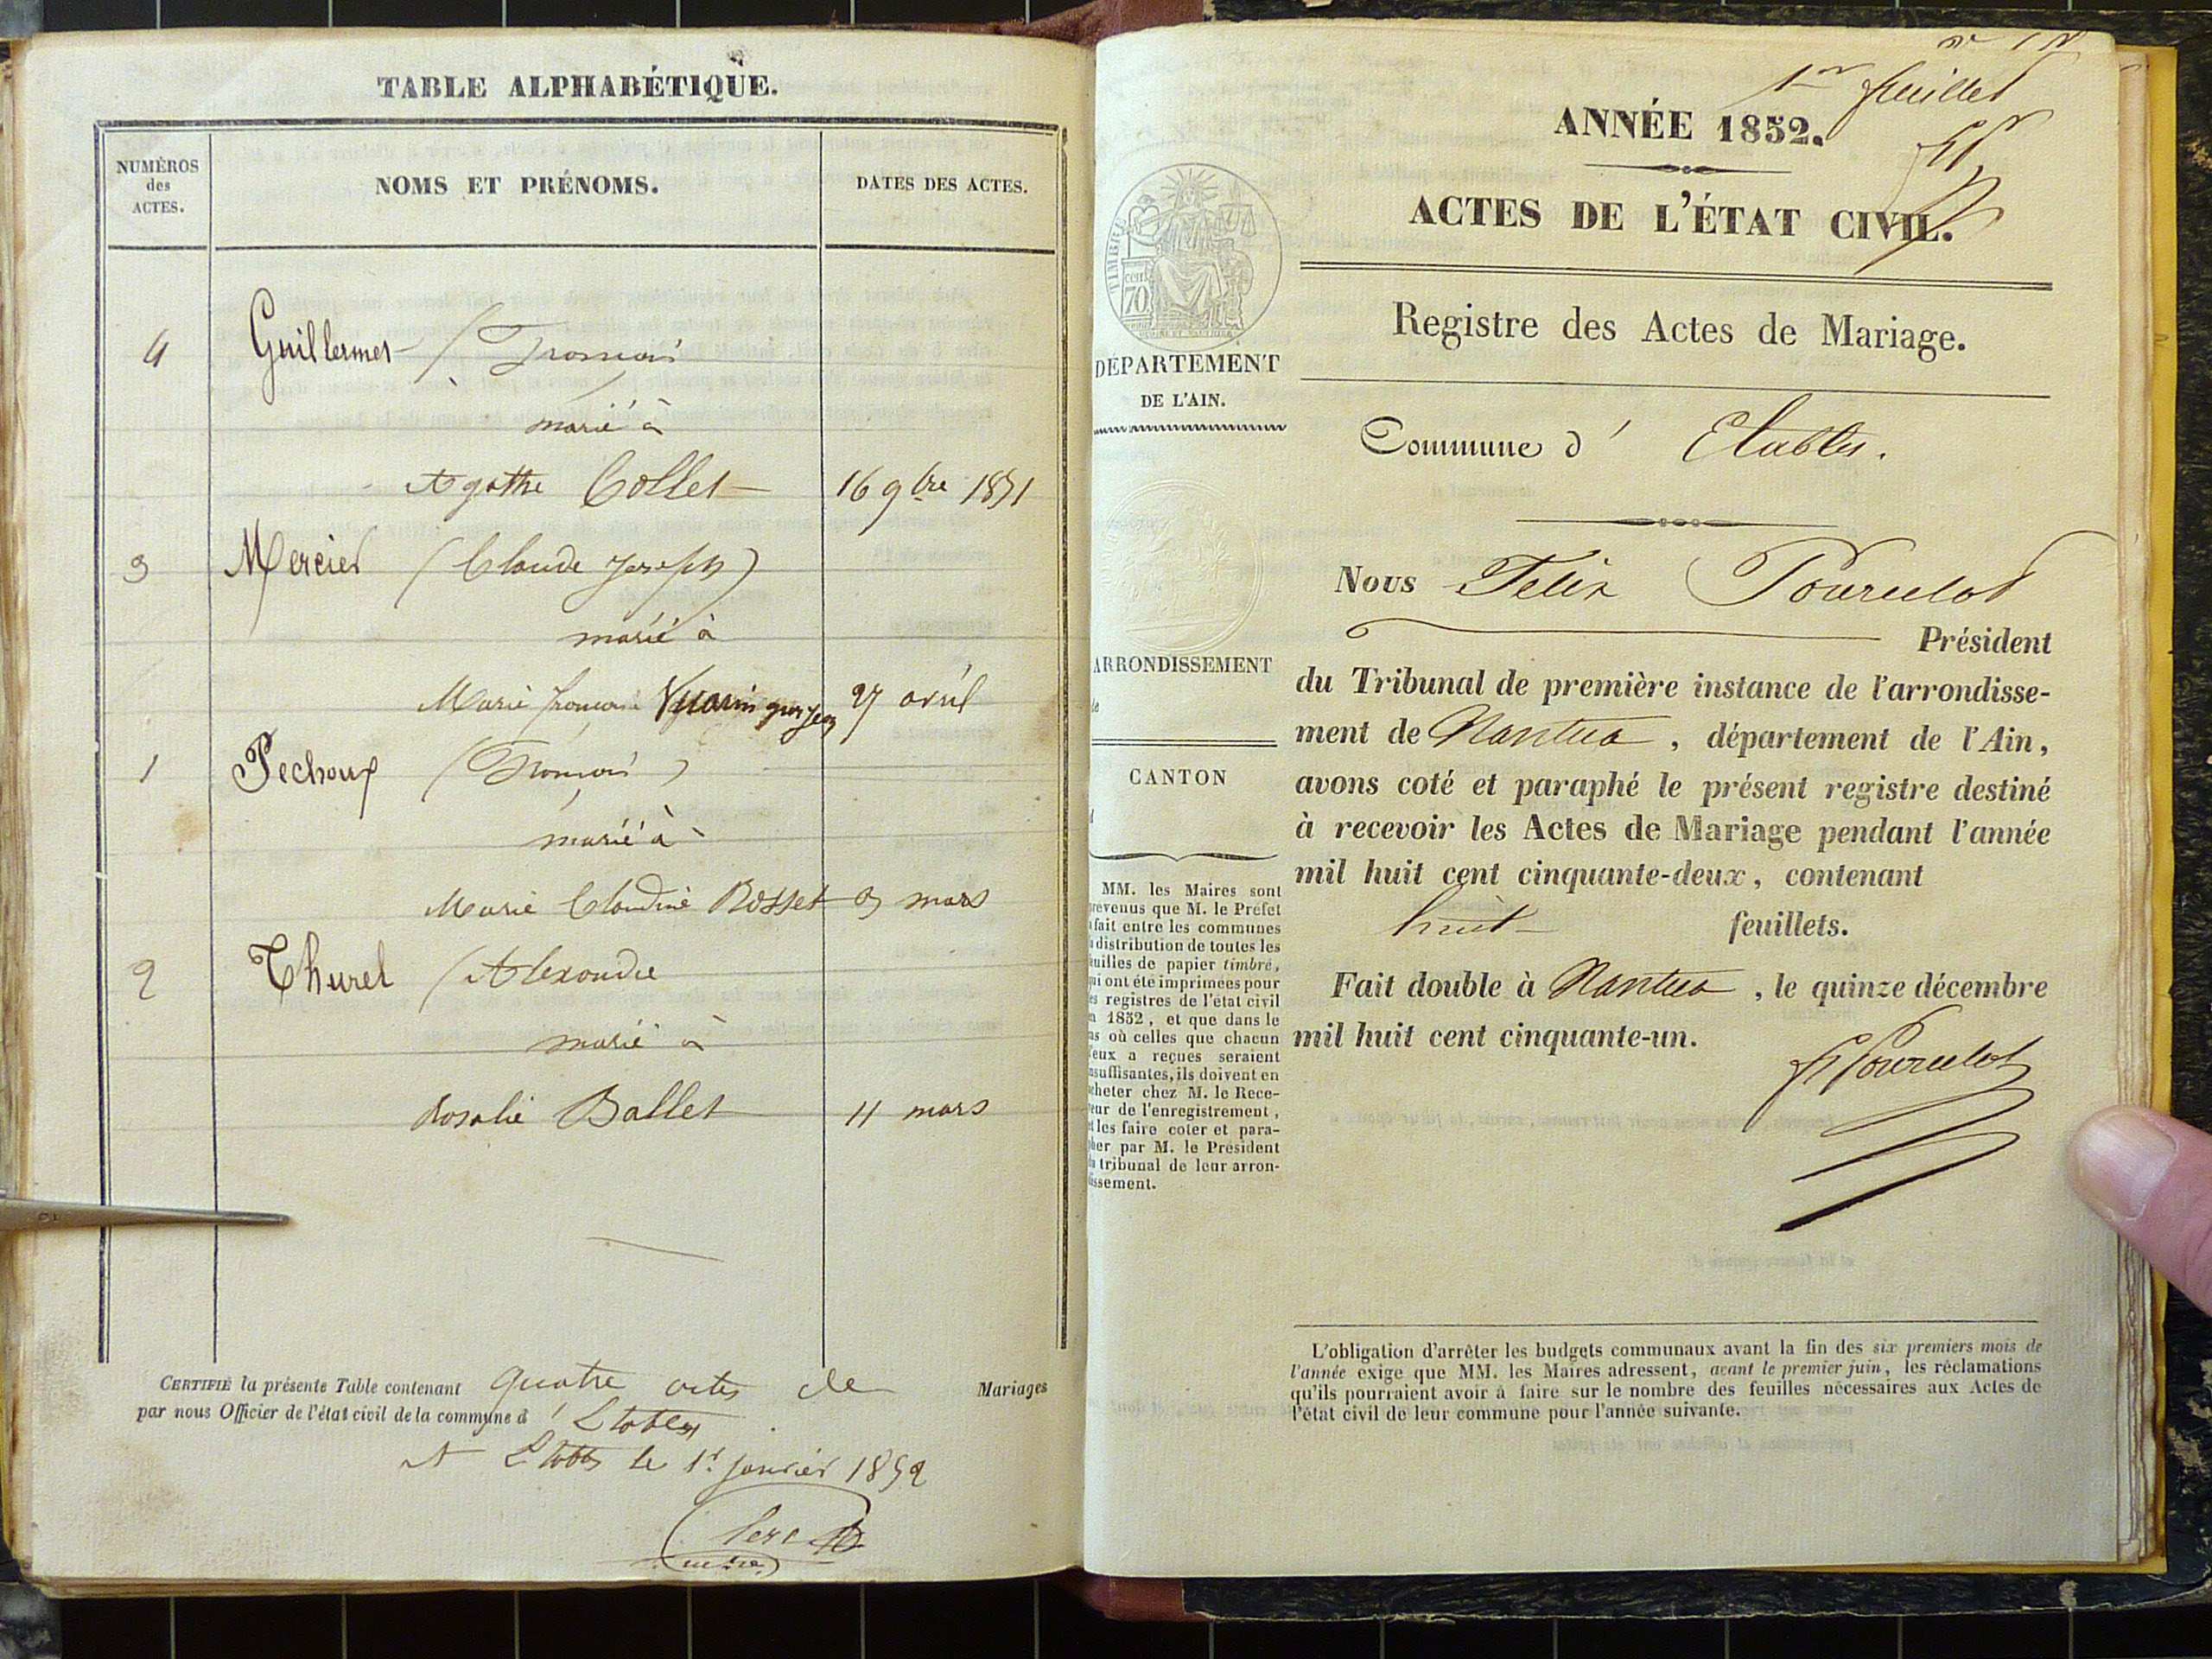 TABLE ALPHABÉTIQUE.
NUMÉROS
des
ACTES.
NOMS ET PRÉNOMS.
DATES DES ACTES.
4 Guillermet (François
marié à
Agathe Collet 16 9bre 1851
3 Mercier (Claude Joseph)
marié à
Marie françoise Vuarin 27 avril
1 Pechoux (François)
marié à
Marie Claudine Bosset 3 mars
2 Thurel (Alexandre
marié à
Rosalie Ballet 11 mars
CERTIFIÉ la présente Table contenant quatre actes de Mariages
par nous Officier de l'état civil de la commune d' Etables
A Etables le 1er janvier 1852
1er feuillet
ANNÉE 1852.
ACTES DE L'ÉTAT CIVIL.
TIMBRE
cent
70
Registre des Actes de Mariage.
DÉPARTEMENT
DE L'AIN.
Commune d' Etables.
Nous Felix Pourcelot
Président
ARRONDISSEMENT
du Tribunal de première instance de l'arrondisse-
ment de Nantua, département de l'Ain,
CANTON
avons coté et paraphé le présent registre destiné
à recevoir les Actes de Mariage pendant l'année
mil huit cent cinquante-deux, contenant
huit feuillets.
Fait double à Nantua, le quinze décembre
mil huit cent cinquante-un.
F Pourcelot
MM. les Maires sont
revenus que M. le Préfet
fait entre les communes
distribution de toutes les
euilles de papier timbré,
ui ont été imprimées pour
es registres de l'état civil
1852, et que dans le
as où celles que chacun
eux a reçues seraient
nsuffisantes, ils doivent en
cheter chez M. le Rece-
eur de l'enregistrement,
t les faire coter et para-
her par M. le Président
u tribunal de leur arron-
issement.
L'obligation d'arrêter les budgets communaux avant la fin des six premiers mois de
l'année exige que MM. les Maires adressent, avant le premier juin, les réclamations
qu'ils pourraient avoir à faire sur le nombre des feuilles nécessaires aux Actes de
l'état civil de leur commune pour l'année suivante.